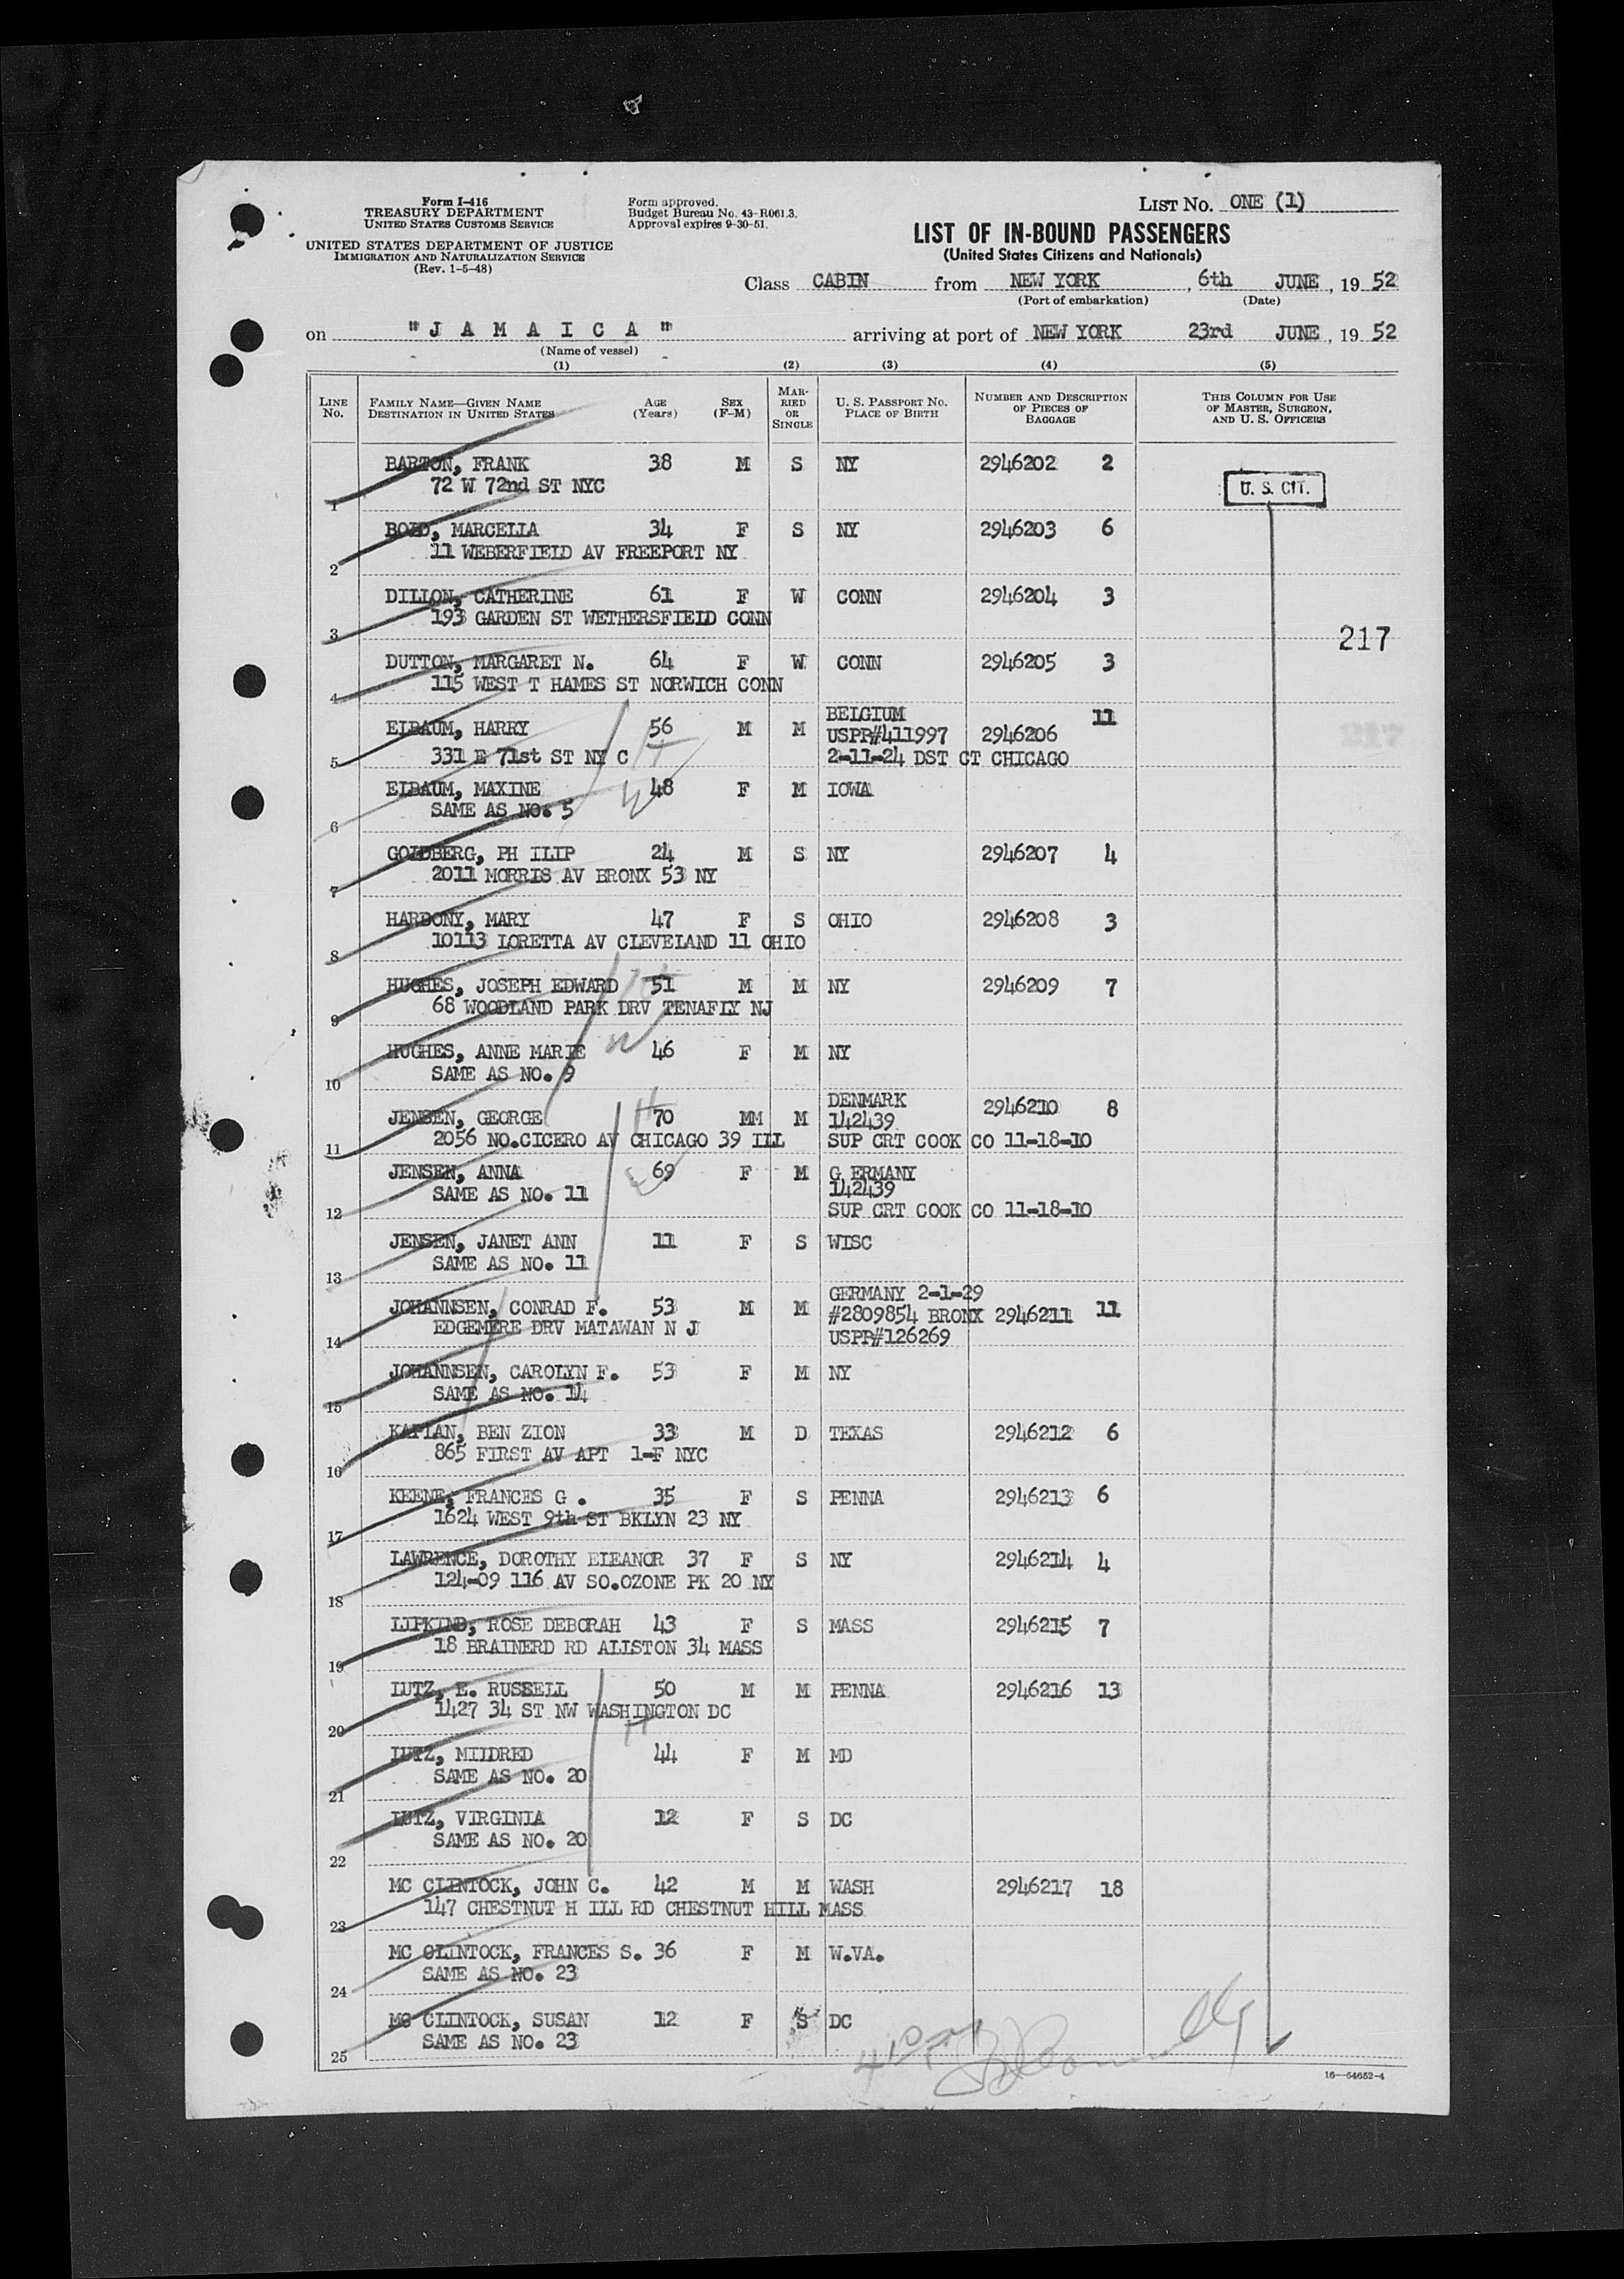 Form I-416
TREASURY DEPARTMENT
UNITED STATES CUSTOMS SERVICE
UNITED STATES DEPARTMENT OF JUSTICE
IMMIGRATION AND NATURALIZATION SERVICE
(Rev. 1-5-48)
Form approved.
Budget Bureau No. 43-R061.3.
Approval expires 9-30-51.
LIST NO. ONE (1)
LIST OF IN-BOUND PASSENGERS
(United States Citizens and Nationals)
Class CABIN from NEW YORK, 6th JUNE, 19 52
(Port of embarkation) (Date)
on "J A M A I C A" arriving at port of NEW YORK 23rd JUNE, 19 52
(Name of vessel)
(1) (2) (3) (4) (5)
LINE No. FAMILY NAME—GIVEN NAME DESTINATION IN UNITED STATES AGE (Years) SEX (F-M) MARRIED OR SINGLE U. S. PASSPORT NO. PLACE OF BIRTH NUMBER AND DESCRIPTION OF PIECES OF BAGGAGE THIS COLUMN FOR USE OF MASTER, SURGEON, AND U. S. OFFICERS
BARTON, FRANK 38 M S NY 2946202 2
72 W 72nd ST NYC
U. S. CIT.
1
BOLD, MARCELLA 34 F S NY 2946203 6
11 WEBERFIELD AV FREEPORT NY
2
DILLON, CATHERINE 61 F W CONN 2946204 3
193 GARDEN ST WETHERSFIELD CONN
3
217
DUTTON, MARGARET N. 64 F W CONN 2946205 3
115 WEST T HAMES ST NORWICH CONN
4
BELGIUM 11
ELBAUM, HARRY 56 M M USPP#411997 2946206
5 331 E 71st ST NY C 2-11-24 DST CT CHICAGO
217
ELBAUM, MAXINE 48 F M IOWA
SAME AS NO. 5
6
GOLDBERG, PH ILIP 24 M S NY 2946207 4
2011 MORRIS AV BRONX 53 NY
7
HARDONY, MARY 47 F S OHIO 2946208 3
10113 LORETTA AV CLEVELAND 11 OHIO
8
HUGHES, JOSEPH EDWARD 51 M M NY 2946209 7
68 WOODLAND PARK DRV TENAFLY NJ
9
HUGHES, ANNE MARIE 46 F M NY
SAME AS NO. 9
10
DENMARK
JENSEN, GEORGE 70 MM M 142439 2946210 8
2056 NO.CICERO AV CHICAGO 39 ILL SUP CRT COOK CO 11-18-10
11
JENSEN, ANNA 69 F M G ERMANY
SAME AS NO. 11 142439
12 SUP CRT COOK CO 11-18-10
JENSEN, JANET ANN 11 F S WISC
SAME AS NO. 11
13
GERMANY 2-1-29
JOHANNSEN, CONRAD F. 53 M M #2809854 BRONX 2946211 11
EDGEMERE DRV MATAWAN N J USPP#126269
14
JOHANNSEN, CAROLYN F. 53 F M NY
SAME AS NO. 14
15
KAPLAN, BEN ZION 33 M D TEXAS 2946212 6
865 FIRST AV APT 1-F NYC
16
KEENE, FRANCES G . 35 F S PENNA 2946213 6
1624 WEST 9th ST BKLYN 23 NY
17
LAWRENCE, DOROTHY ELEANOR 37 F S NY 2946214 4
124-09 116 AV SO.OZONE PK 20 NY
18
LIPKIND, ROSE DEBORAH 43 F S MASS 2946215 7
18 BRAINERD RD ALLSTON 34 MASS
19
LUTZ, E. RUSSELL 50 M M PENNA 2946216 13
1427 34 ST NW WASHINGTON DC
20
LUTZ, MILDRED 44 F M MD
SAME AS NO. 20
21
LUTZ, VIRGINIA 12 F S DC
SAME AS NO. 20
22
MC CLINTOCK, JOHN C. 42 M M WASH 2946217 18
147 CHESTNUT H ILL RD CHESTNUT HILL MASS
23
MC CLINTOCK, FRANCES S. 36 F M W.VA.
SAME AS NO. 23
24
MC CLINTOCK, SUSAN 12 F S DC
SAME AS NO. 23
25
16—54652-4